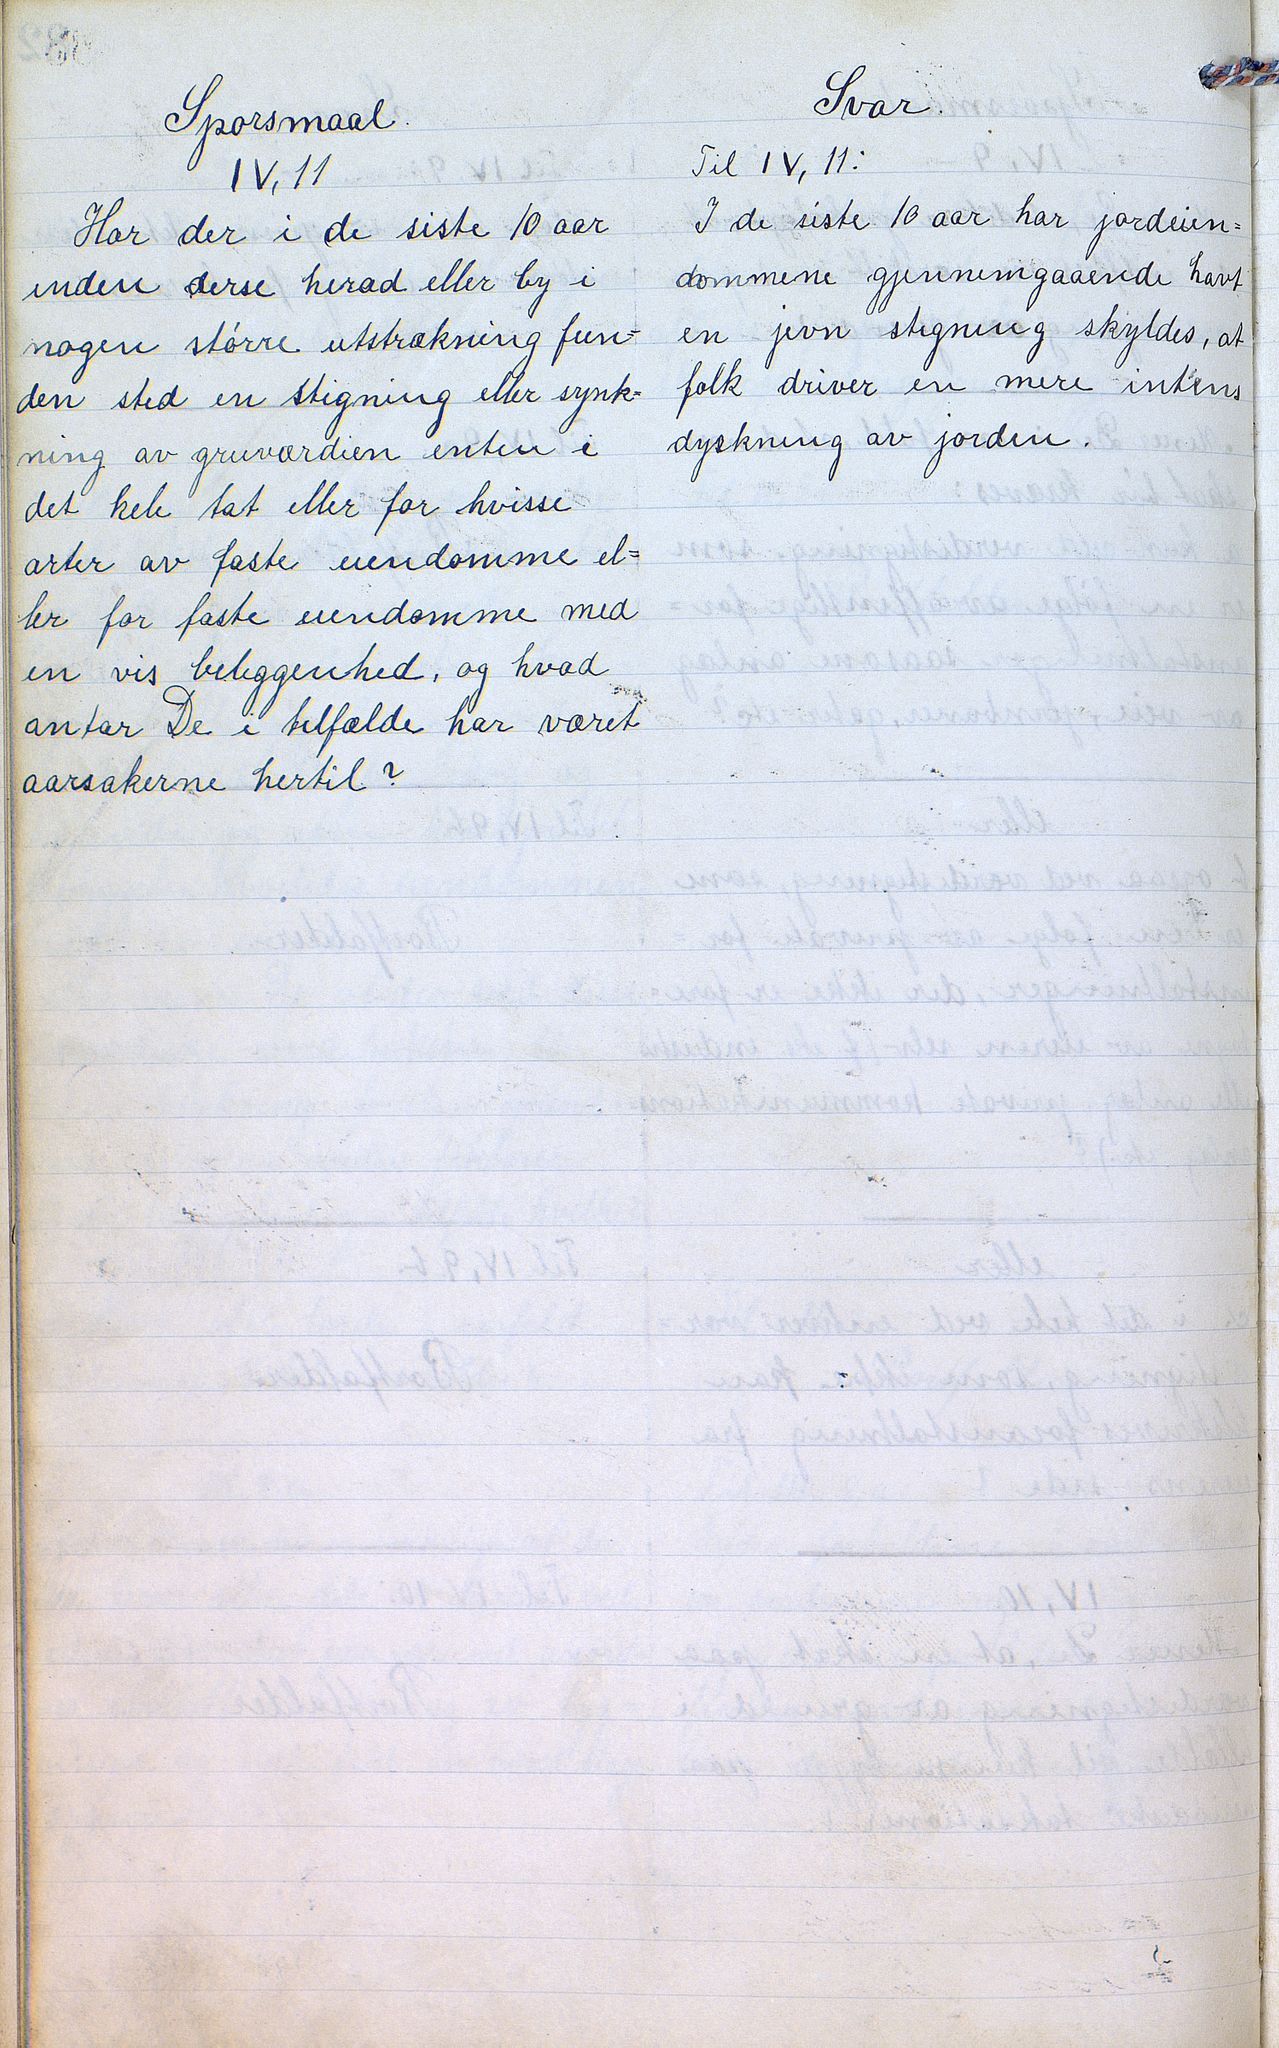 Sporsmaal.
IV, 11
Har der i de siste 10 aar
inden derse herad eller by i
nogen större utstrækning fun=
den sted en stigning eller synk=
ning av gruværdien enten i
det hele tat eller for hvisse
arter av faste eiendomme el=
ler for faste eiendomme med
en vis beleggenhed, og hvad
antar De i telfælde har været
aarsakerne hertil?
Svar.
Til IV, 11:
I de siste 10 aar har jordeien=
dommene gjennemgaaende havt
en jevn stegning skyldes, at
folk driver en mere intens
dyskning av jorden.